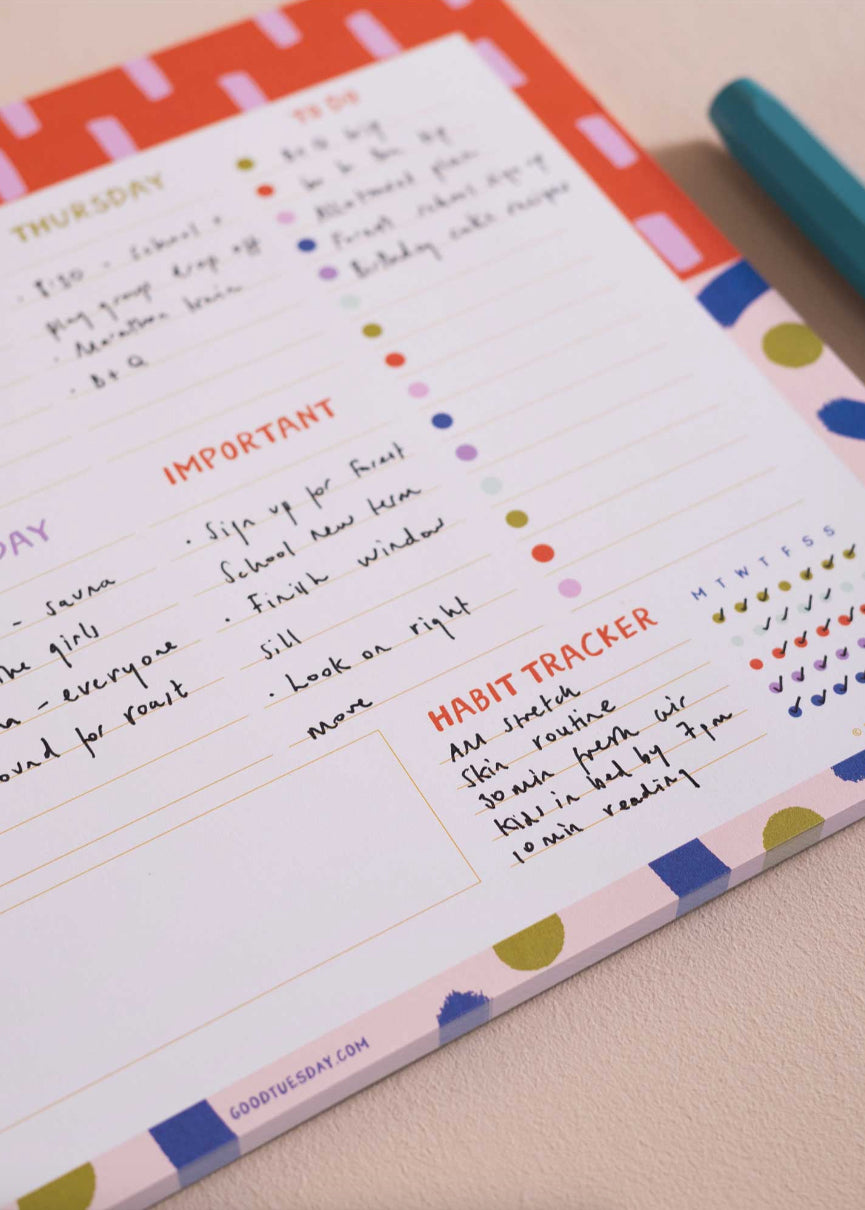 THURSDAY
· 8:30 - School +
play group drop off
· Marathon train
· B+Q
TO DO
B+Q
Allotment plan
Forest school sign up
Birthday cake recipes
IMPORTANT
· Sign up for Forest
School new term
· Finish window
sill
· Look on right
move
DAY
- sauna
the girls
- everyone
round for roast
HABIT TRACKER
M T W T F S S
AM stretch
Skin routine
30 min fresh air
Kids in bed by 7pm
10 min reading
©
GOODTUESDAY.COM